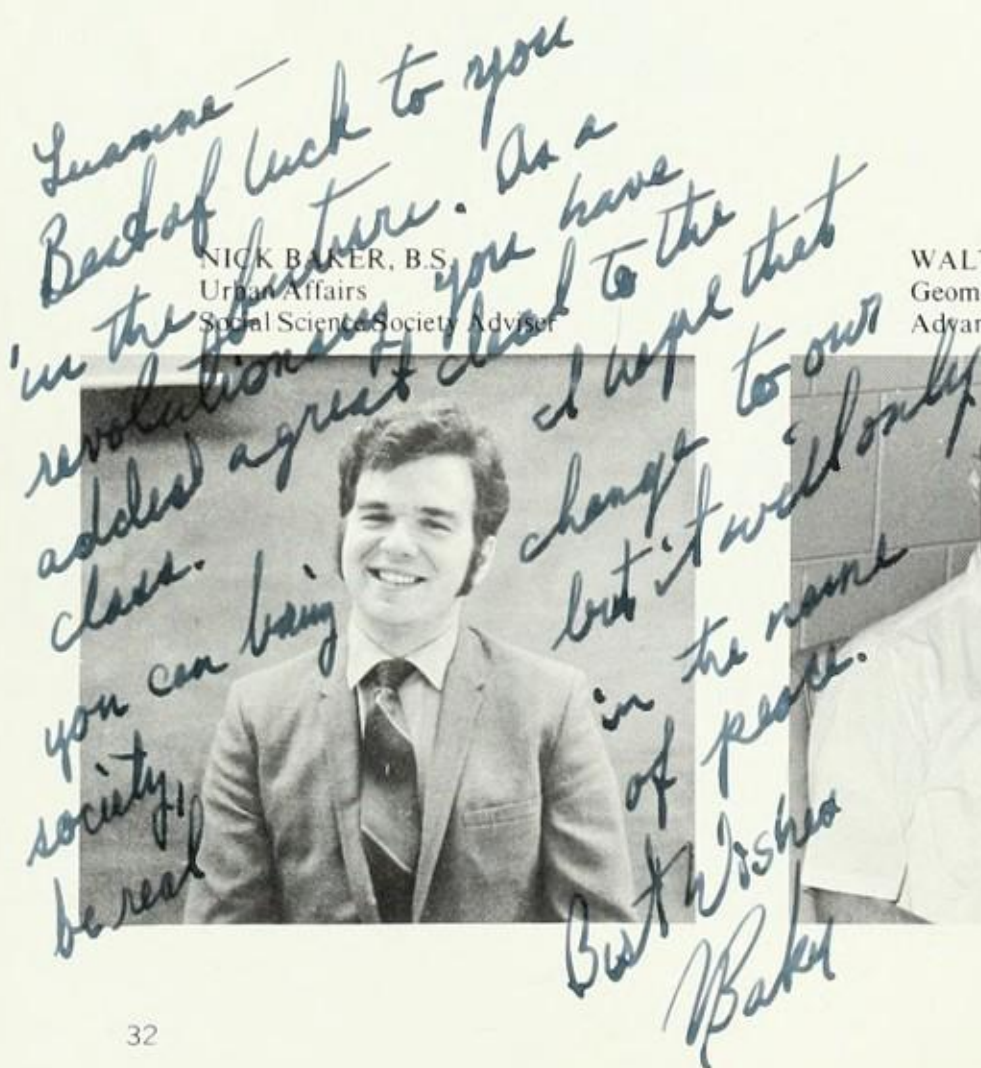 Luanne —
Best of luck to you
in the future. As a
revolutionary you have
added a great deal to the
class. I hope that
you can bring change to our
society, but it will only
be real in the name
of peace.
Best Wishes
NBaker
NICK BAKER, B.S.
Urban Affairs
Social Science Society Adviser
WAL
Geom
Advan
32